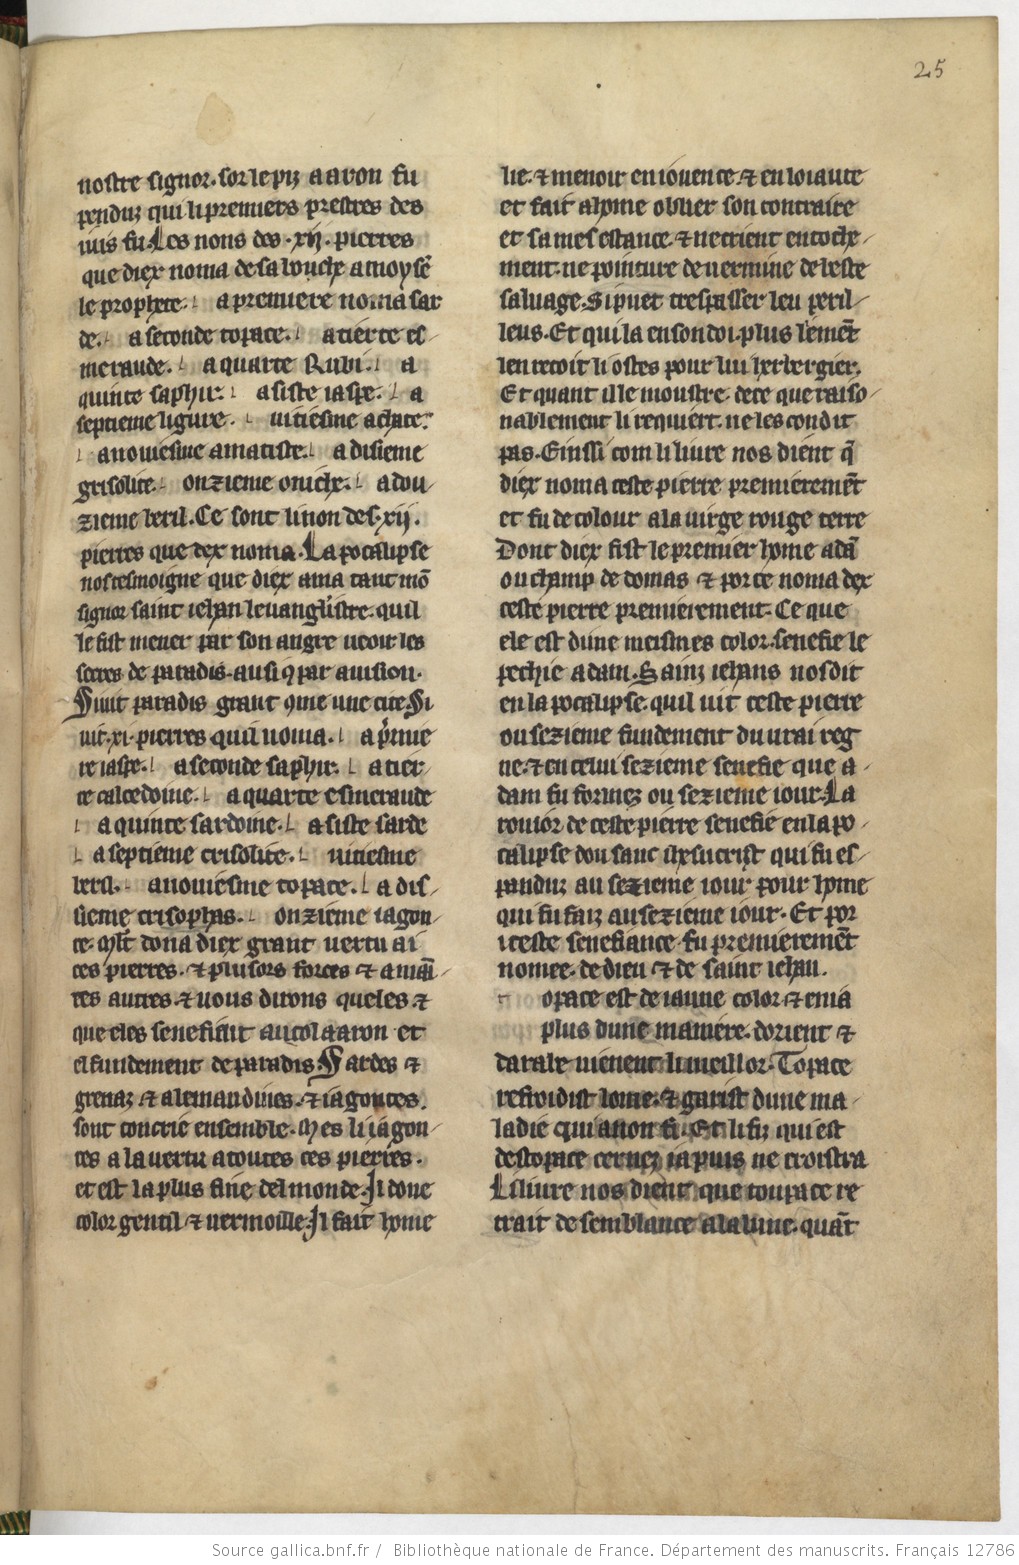 25
nostre signor. sor le piz aaron fu
penduz qui li premiers prestres des
iuis fu. Les nons des .xij. pierres
que diex noma de sa bouche a moysẽ
le prophete. a premiere noma sar
de. a seconde topace. a tierte es-
meraude. a quarte Rubi. a
quinte saphir. a siste iaspe. a
septieme ligure. uitiesme achate.
a nouiesme amatiste. a disieme
grisolite. onzieme oniche. a dou-
zieme beril. Ce sont li non des .xij.
pierres que dex noma. La pocalipse
nos tesmoigne que diex ama tant mõ
signor saint iehan leuangl'istre. quil
le fist mener par son angre ueoir les
secres de paradis. ausi ꝯ par auision.
Siuit paradis grant ꝯme une cite Si
uit .xi. pierres quil noma. a p'rmie
re iaspe. a seconde saphir. a tier-
te calcedoine. a quarte esmeraude
a quinte sardoine. a siste sarde
a septieme crisolite. uitiesme
beril. a nouiesme topace. a dis-
sieme crisophas. onzieme iagon-
ce. dona diex grant uertu ai
ces pierres. ⁊ plusors forces ⁊
tes autres. ⁊ uous dirons queles. ⁊
que eles senefient au col aaron et
el fundement de paradis. Sardes ⁊
grenaz ⁊ alemandines. ⁊ iagonces.
sont concrie ensemble. Mes li iagon-
ces a la uertu a toutes ces pierres.
et est la plus fine del monde. Il done
color gentil ⁊ uermoille. Il fait home
lie. ⁊ menoir en iouence. ⁊ en loiaute
et fait a home oblier son contraire
et sa mesestance. ⁊ ne crient entoche-
ment. ne pointure de uermine de beste
saluage. Si puet trespasser leu peril-
leus. Et qui la en son doi. plus bement
len recoit li ostes pour lui herbergier.
Et quant il le moustre. de ce que raiso-
nablement li requiert. ne lescondit
pas. Einssi com li liure nos dient q̃
diex noma ceste pierre premieremẽt
et fu de colour a la uirge rouge terre
Dont diex fist le premier home adã
ou champ de domas ⁊ por ce noma dex
ceste pierre premierement. Ce que
ele est dune meismes color. senefie le
pechie adam. Sainz iehans nos dit
en la pocalipse. quil uit ceste pierre
ou sezieme fundement du urai reg
ne. ⁊ en celui sezieme senefie que a-
dam fu formez ou sezieme iour. La
rouior de ceste pierre senefie en la po-
calipse dou sanc ihesucrist qui fu es-
panduz au sezieme iour pour home
qui fu faiz au sezieme iour. Et por
iceste senefiance fu premieremẽt
nomee. de dieu ⁊ de saint iehan.
t opace est de iaune color ⁊ en ia
plus dune maniere. dorient ⁊
darabe uienent li meillor. Topace
refroidist lome. ⁊ garist dune ma-
ladie qui a non fi. Et li fiz qui est
destopace cernez ia puis ne croistra
Li liure nos dient que toupace re
trait de semblance a la lune. quãt
Source gallica.bnf.fr / Bibliothèque nationale de France. Département des manuscrits. Français 12786